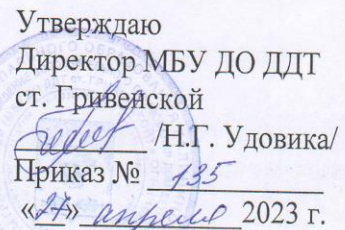 Утверждаю
Директор МБУ ДО ДДТ
ст. Гривенской
/Н.Г. Удовика/
Приказ № 135
«27» апреля 2023 г.